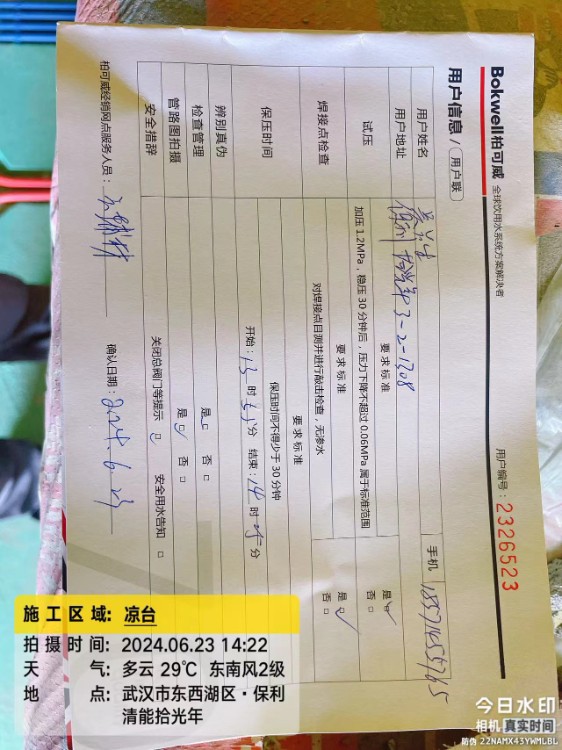 Bokwell柏可威 全球饮用水系统方案解决者
用户信息 / 用户联
用户编号: 2326523
用户姓名
手机
用户地址 3-2-1308
试压
要求标准
加压 1.2MPa，稳压 30 分钟后，压力下降不超过 0.06MPa 属于标准范围
是□ 否□
焊接点检查
要求标准
对焊接点目测并进行敲击检查，无渗水
是□ 否□
保压时间
要求标准
保压时间不得少于 30 分钟
开始: 13 时 分 结束: 14 时 分
辨别真伪
检查管理
是□ 否□
管路图拍摄
是□ 否□
安全措辞
关闭总阀门等提示 □ 安全用水告知 □
柏可威经销网点服务人员:
确认日期: 2024.6.23
施工区域: 凉台
拍摄时间: 2024.06.23 14:22
天 气: 多云 29℃ 东南风2级
地 点: 武汉市东西湖区·保利清能拾光年
今日水印
相机 真实时间
防伪 22NAMX43YWMLBL